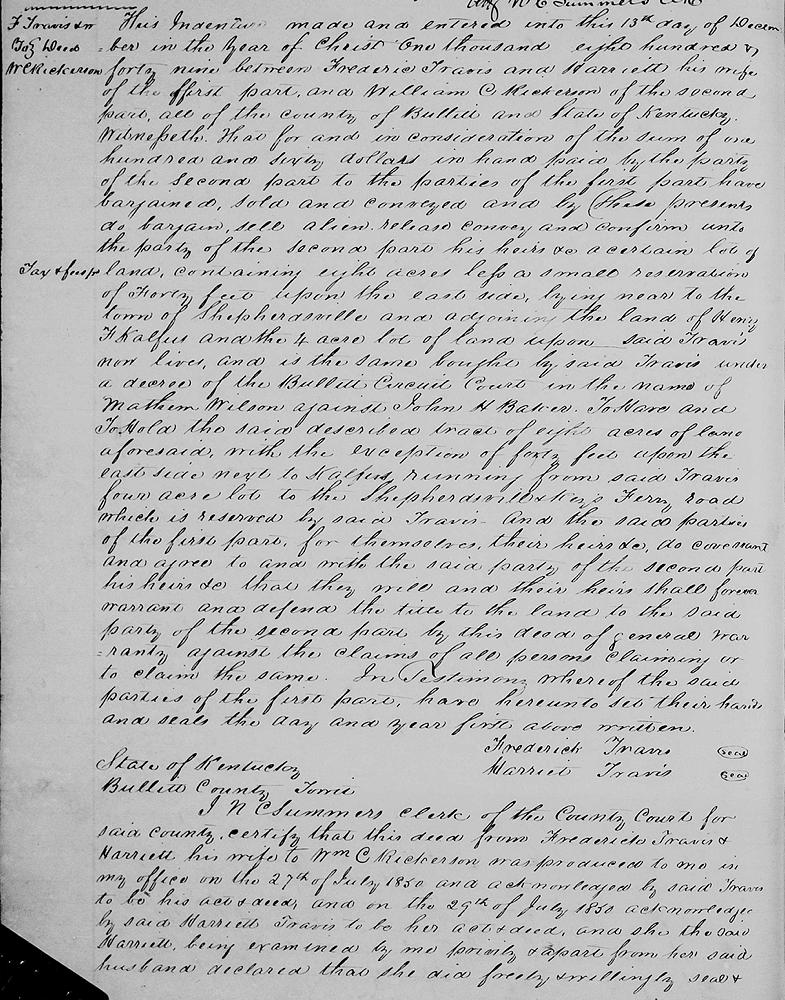 Att W C Summers Clk
F Travis &
To } Deed
W C Rickerson
This Indenture made and entered into this 13th day of Decem
=ber in the Year of Christ One thousand eight hundred &
forty nine between Frederic Travis and Harriett his wife
of the ffirst part, and William C Rickerson of the second
part, all of the county of Bullitt and State of Kentucky.
Witnesseth. That for and in consideration of the sum of one
hundred and sixty dollars in hand paid by the party
of the second part to the parties of the first part have
bargained, sold and conveyed and by these presents
do bargain, sell alien. release convey and confirm unto
the party of the second part his heirs &c a certain lot of
Tax & fees pd
land, containing eight acres less a small reservation
of Forty feet upon the east side, lying near to the
town of Shepherdsville and adjoining the land of Henry
F Kalfus and the 4 acre lot of land upon said Travis
now lives, and is the same bought by said Travis under
a decree of the Bullitt Circuit Court in the name of
Mathew Wilson against John H Baker. To Have and
To Hold the said described tract of eight acres of land
aforesaid, with the exception of forty feet upon the
east side next to Kalfus, running from said Travis
four acre lot to the Shepherdsville & Key's Ferry road
which is reserved by said Travis- And the said parties
of the first part, for themselves, their heirs &c, do covenant
and agree to and with the said party of the second part
his heirs &c that they will and their heirs shall forever
warrant and defend the title to the land to the said
party of the second part by this deed of general War
=ranty against the claims of all persons claiming or
to claim the same. In Testimony whereof the said
parties of the first part, have hereunto set their hands
and seals the day and year first above written.
Frederick Travis (seal)
Harriet Travis (seal)
State of Kentucky
Bullitt County Towit
I N C Summers clerk of the County Court for
said county, certify that this deed from Frederick Travis &
Harriett his wife to Wm C Rickerson was produced to me in
my office on the 27th of July 1850 and acknowledged by said Travis
to be his act & deed, and on the 29th of July 1850 acknowledged
by said Harriett Travis to be her act & deed, and she the said
Harriett, being examined by me privily & apart from her said
husband declared that she did freely & willingly seal &